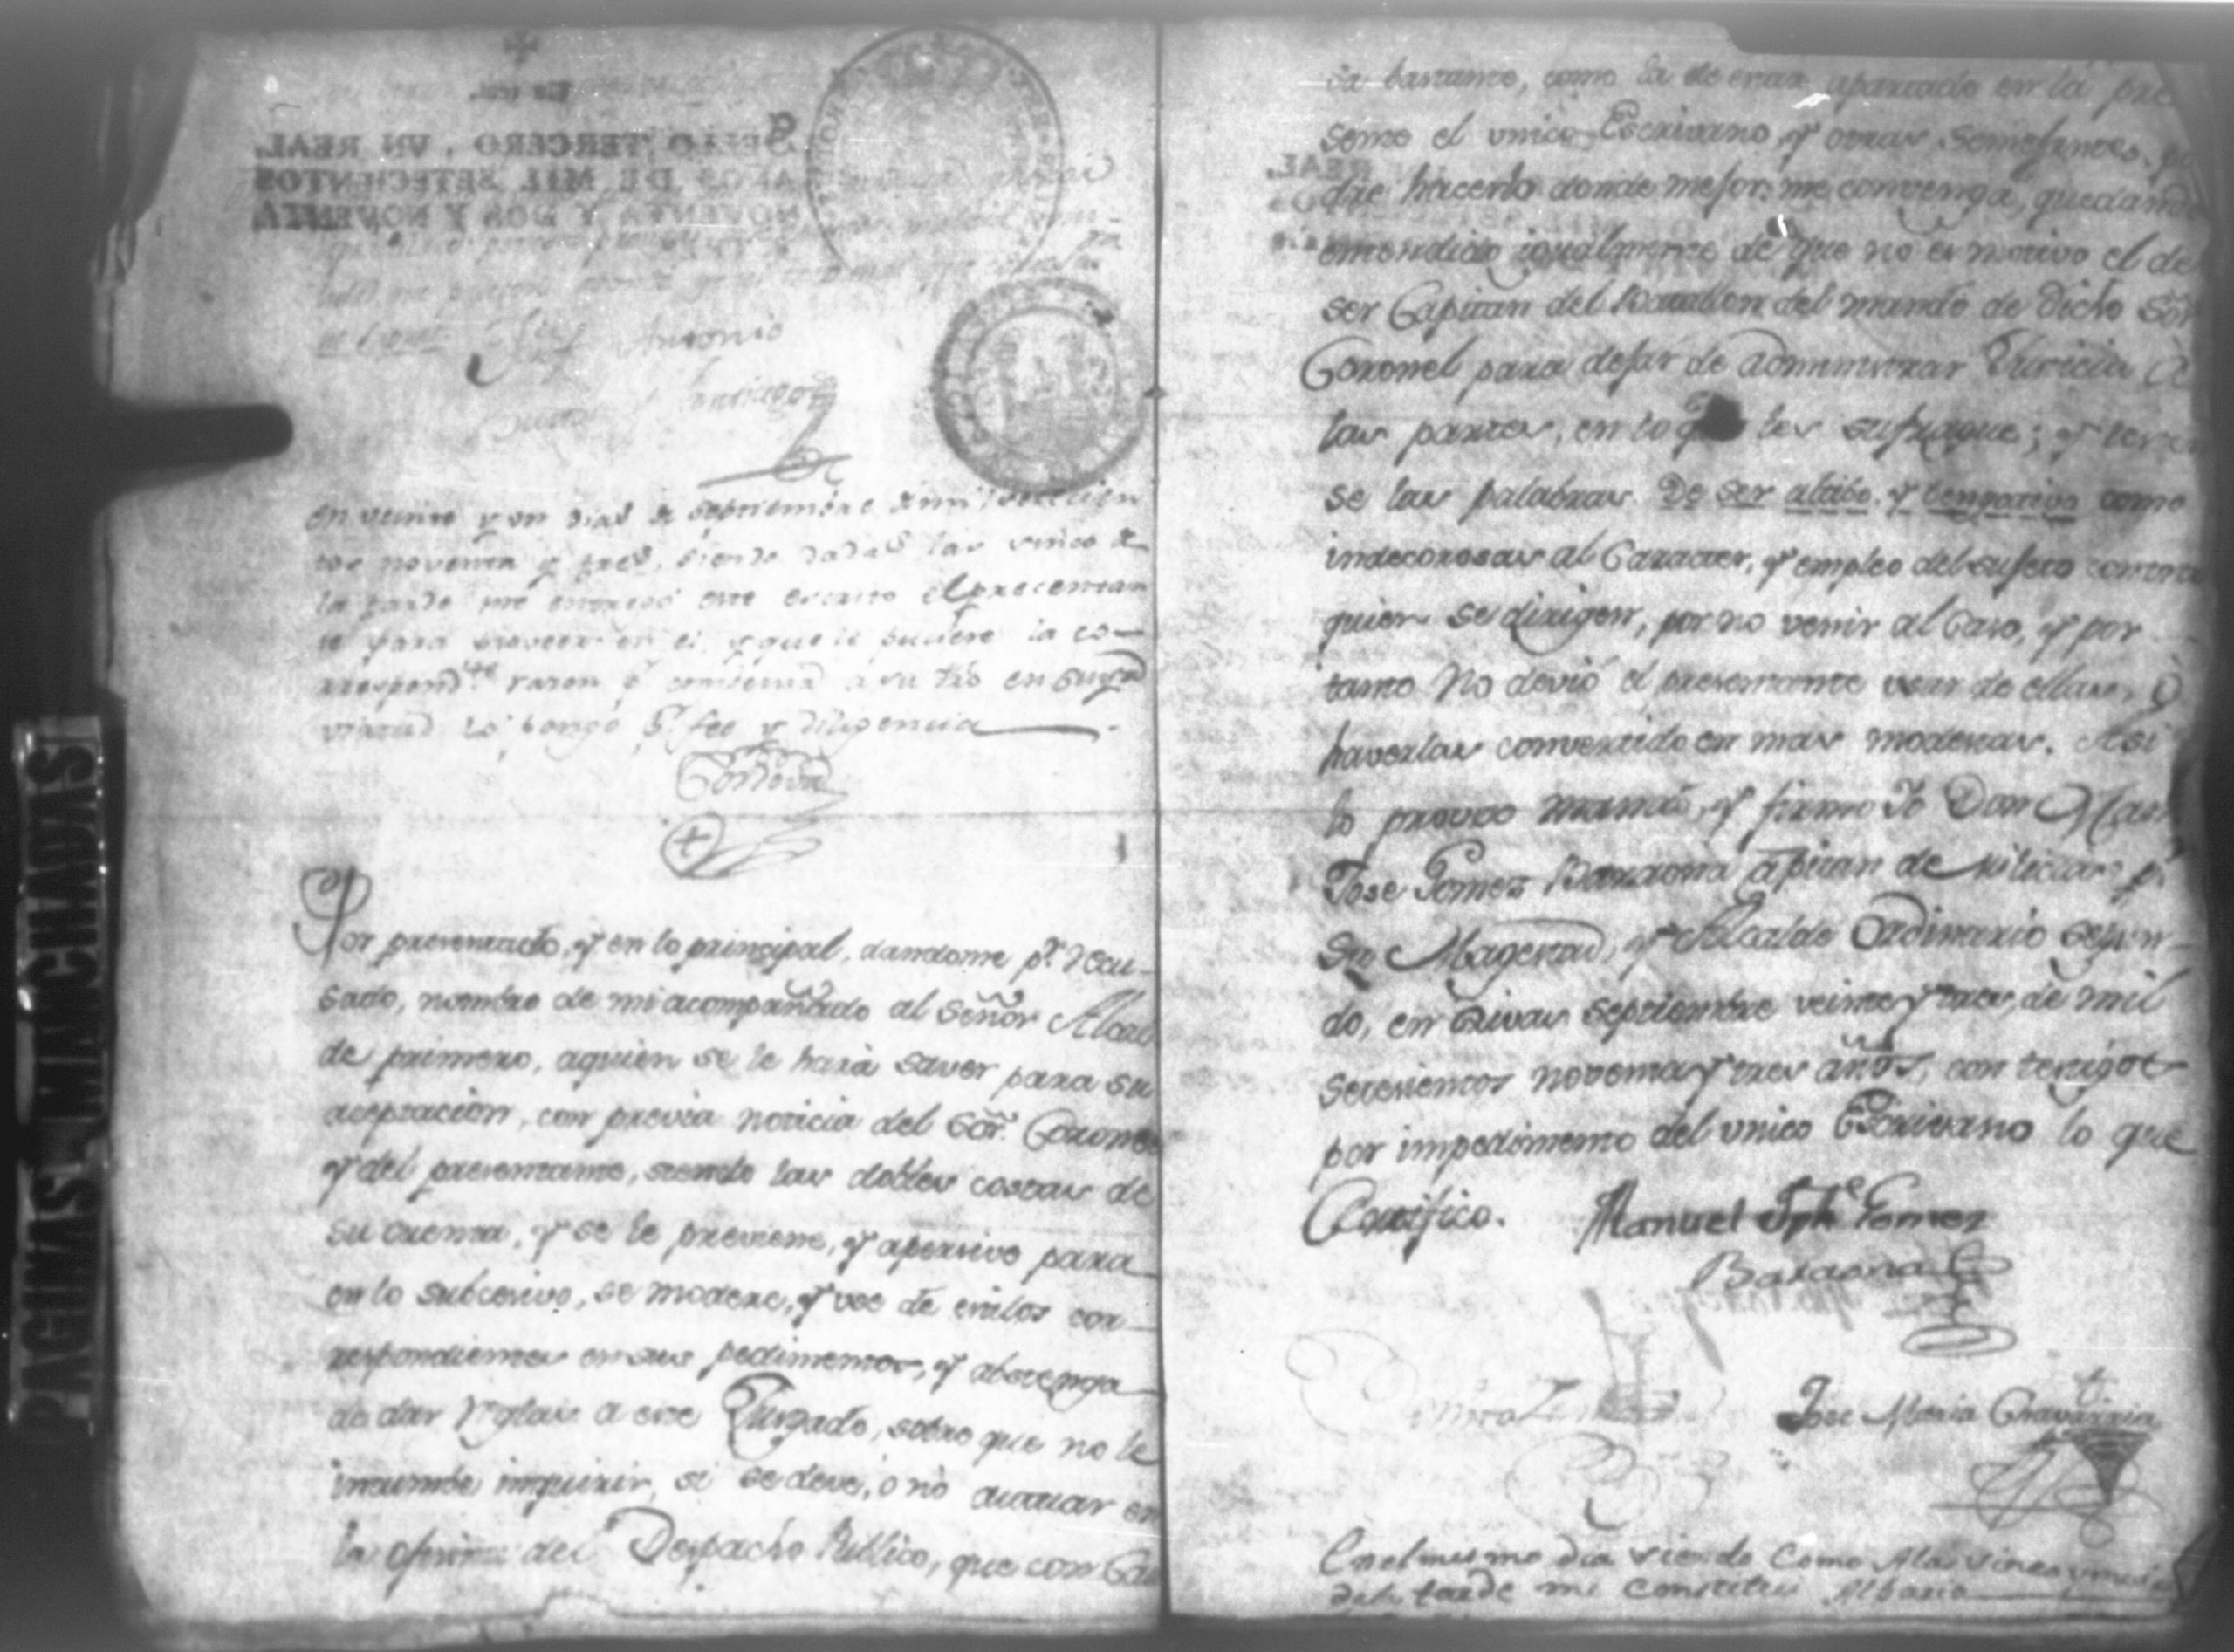 Un real.
SELLO TERCERO, VN REAL,
AÑOS DE MIL SETECIENTOS
NOVENTA Y DOS Y NOVENTA
Antonio
Santiago
en veinte y un dias de septiembre de mil setecien
tos noventa y tres, siendo dadas las cinco de
la tarde me entregó este escrito el precentan
te para proveer en el y que le pusiere la co-
rrespond.te razon
virtud lo pongo p.r fee y diligencia
Cordova
Por presentado, y en lo principal, dandome p.r recu-
sado, nombro de mi acompañado al Señor Alcal
de primero, aquien se le hará saver para su
aceptacion, con previa noticia del Sor. Coronel
y del presentante, siendo las dobles costas de
su cuenta, y se le previene, y apersive para
en lo subcesivo, se modere, y use de estilos cor-
respondientes en sus pedimentos, y abstenga
de dar reglas a este Juzgado, sobre que no le
incumbe inquirir, si se deve, o nó actuar en
la oficina del Despacho Publico, que con Cau
sa bastante, como la de estar apartado en la pre
sente el unico Escrivano, y otras semejantes, po
dre hacerlo donde mejor me convenga, quedando
entendido igualmente de que no es motivo el de
ser Capitan del Batallon del mando de dicho Sor
Coronel para dejar de administrar Justicia á
las partes, en lo q.e les sufrague; y
se las palabras De ser altibo, y bengativo como
indecorosas al Caracter, y empleo del sujeto contra
quien se dirigen, por no venir al Caso, y por
tanto No devió el presentante usar de ellas, ó
haverlas convertido en mas moderas. Asi
lo proveo mando, y firmo Yo Don Man
Jose Gomez Baraona Capitan de Milicias p.r
Su Magestad, y Alcalde Ordinario segun-
do, en Rivas septiembre veinte y tres, de mil
setesientos noventa y tres años, con testigos
por impedimento del unico Escrivano lo que
Certifico. Manuel Jph.e Gomez
Baraona
Jose Maria Chavarria
En el mismo dia siendo Como A las sinco y media
de la tarde me constitui